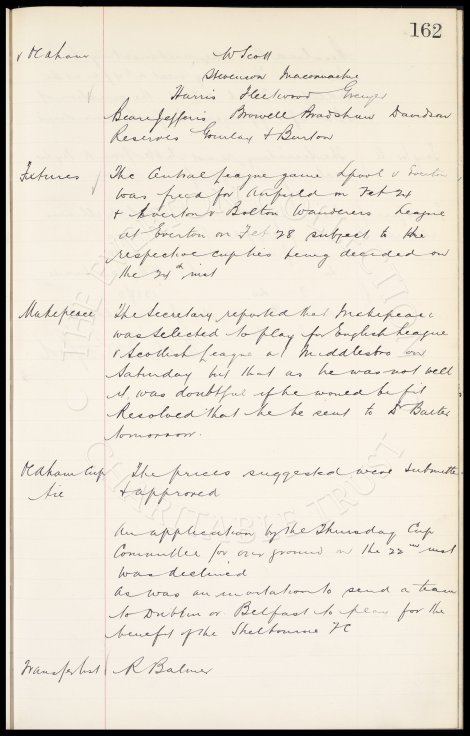 162
v Oldham W Scott
Stevenson Maconnachie
Harris Fleetwood Grenyer
Beare Jefferis Browell Bradshaw Davidson
Reserves Gourlay & Burton
Fixtures The Central League game Lpool v Everton
was fixed for Anfield on Feb 24
& Everton v Bolton Wanderers League
at Everton on Feb 28 subject to the
respective cupties being decided on
the 24th inst
Makepeace The Secretary reported that Makepeace
was selected to play for English League
v Scottish League at Middlesbro on
Saturday but that as he was not well
it was doubtful if he would be fit
Resolved that he be sent to Dr Baxter
tomorrow.
Oldham Cup The prices suggested were submitted
tie & approved
An application by the Thursday Cup
Committee for our ground on the 22nd inst
was declined
as was an invitation to send a team
to Dublin or Belfast to play for the
benefit of the Shelbourne FC
Transfer list R Balmer
THE EVERTON COLLECTION
CHARITABLE TRUST